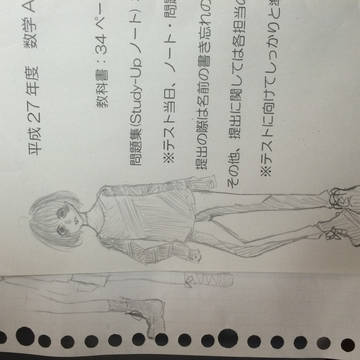 平成27年度 数学A
教科書:34ペー
問題集(Study-Upノート):
※テスト当日、ノート・問題
提出の際は名前の書き忘れの
その他、提出に関しては各担当の
※テストに向けてしっかりと